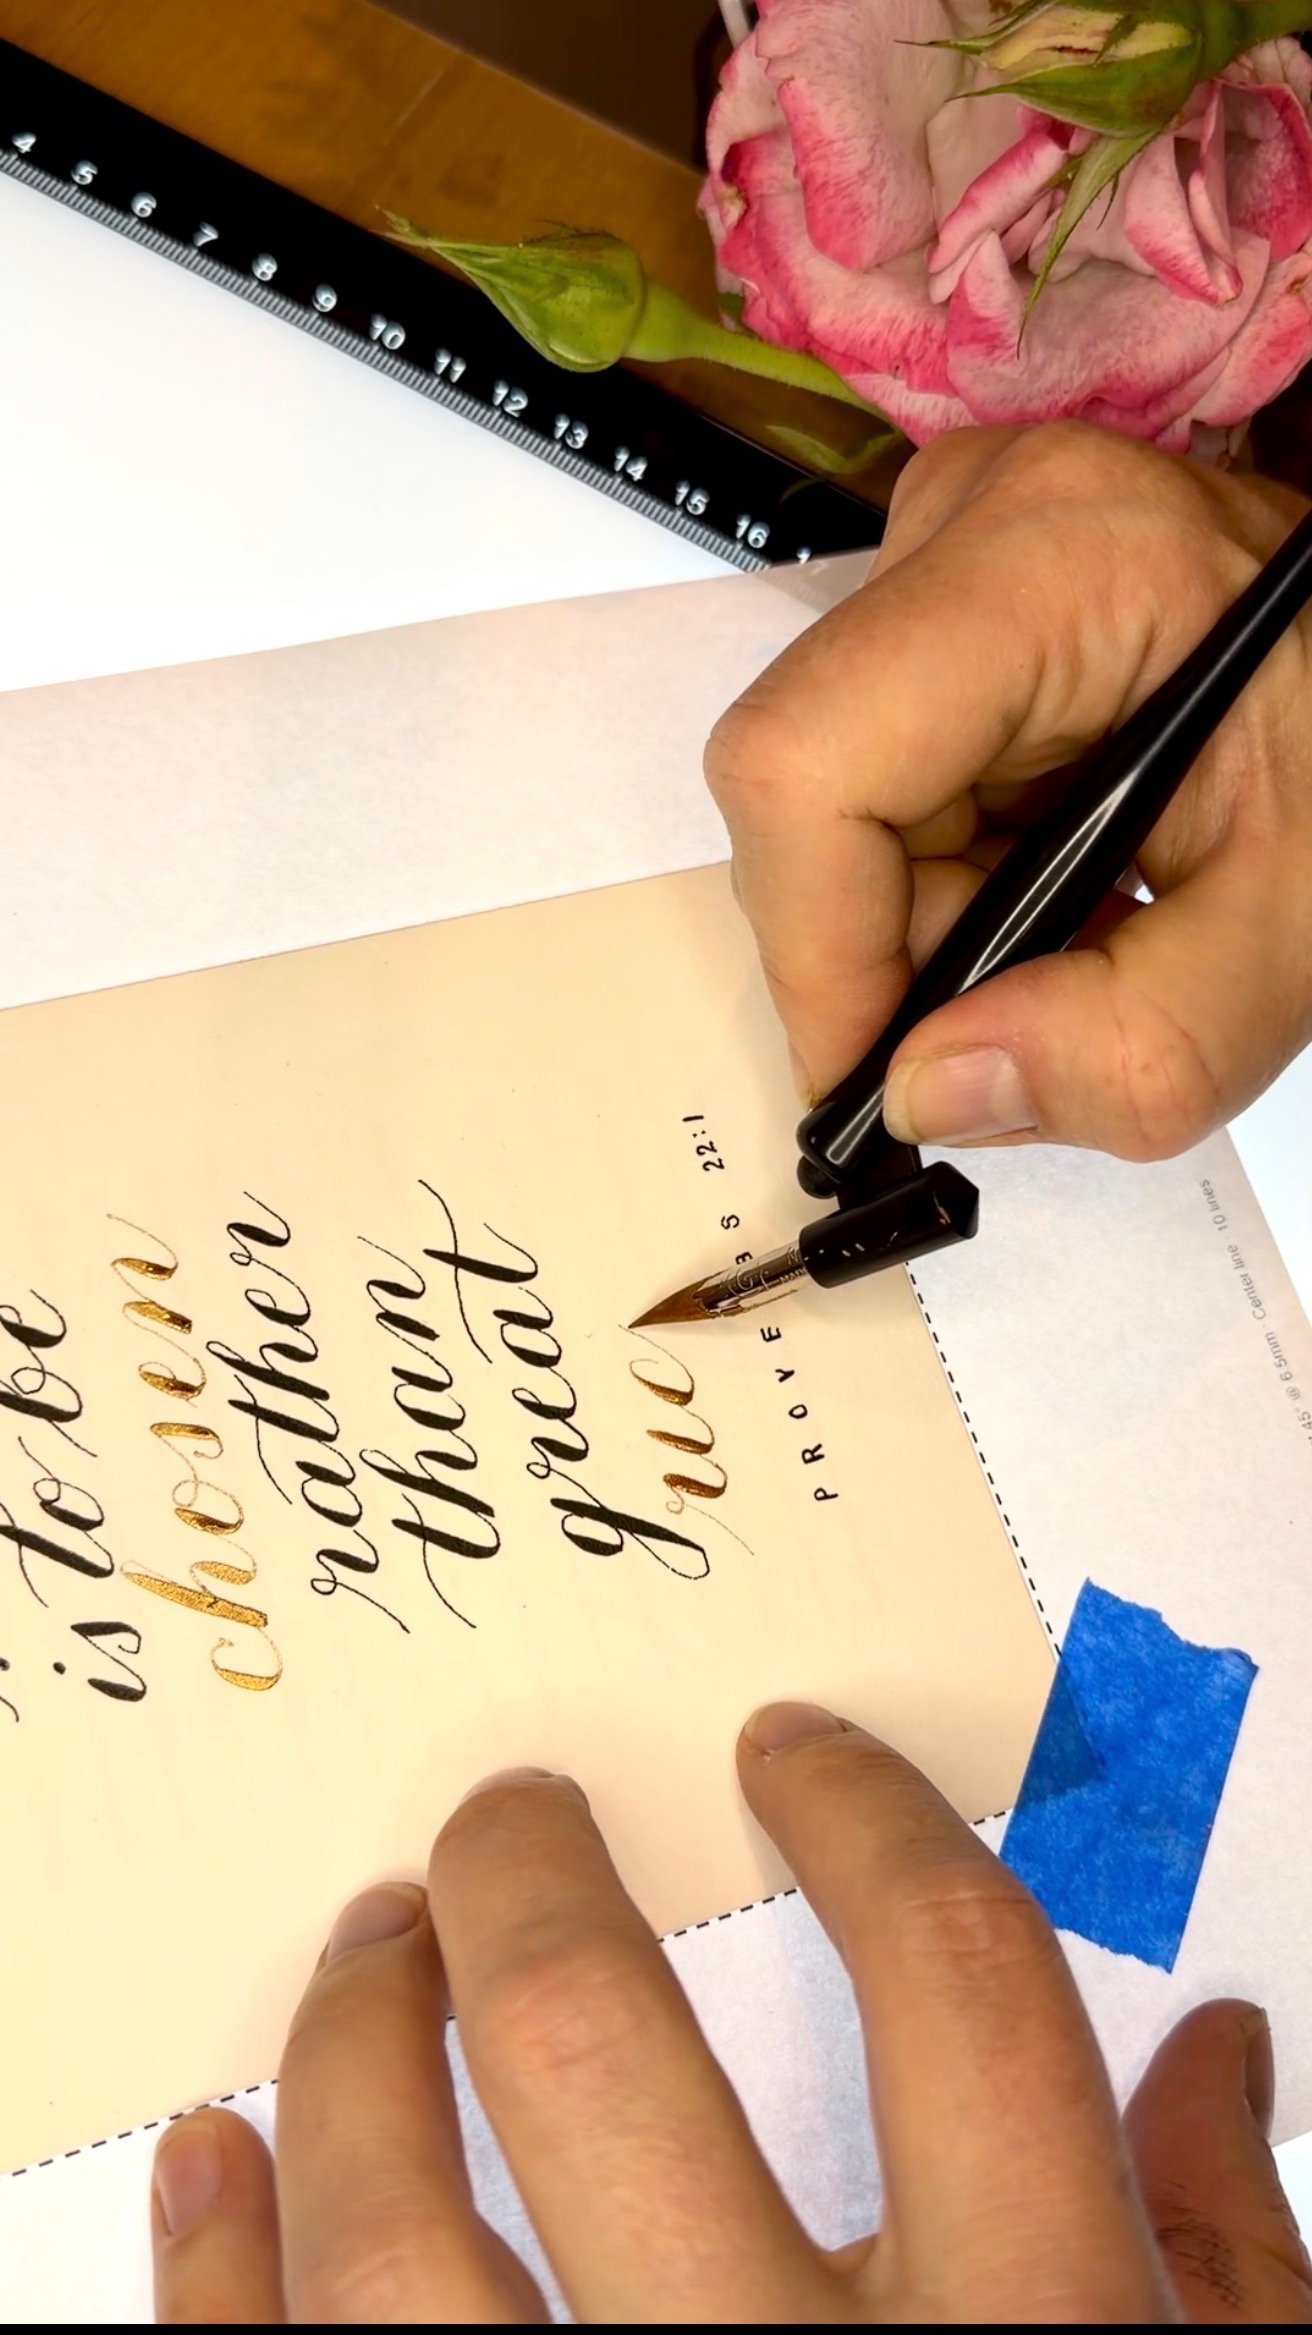 is to be
chosen
rather
than
great
ric
PROVE BS 22:1
45° @ 6.5mm · Center line · 10 lines
4 5 6 7 8 9 10 11 12 13 14 15 16